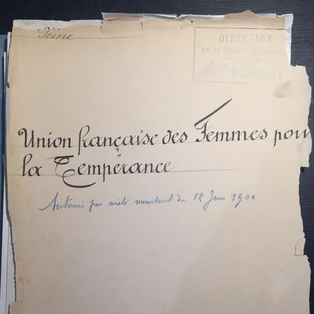 Seine
DIRECTION
4ème BUREAU
Union française des Femmes pour
la Tempérance
Autorisée par arrêté ministériel du 12 Juin 1900